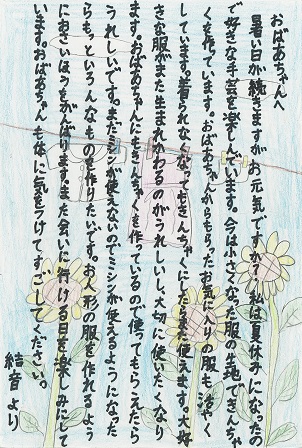 おばあちゃんへ
暑い日が続きますがお元気ですか?私は夏休みになったの
で好きな手芸を楽しんでいます。今は小さくなった服の生地できんちゃ
くを作っています。おばあちゃんからもらったお気に入りの服もきんちゃく
にしています。着られなくなってもきんちゃくにしたらまた使えます。大好
きな服がまた生まれかわるのがうれしいし、大切に使いたくなり
ます。おばあちゃんにもきんちゃくを作っているので使ってもらえたら
うれしいです。まだミシンが使えないのでミシンが使えるようになった
らもっといろんなものを作りたいです。お人形の服を作れるよう
におさいほうをがんばります。また会いに行ける日を楽しみにして
います。おばあちゃんも体に気をつけてすごしてください。
結音より